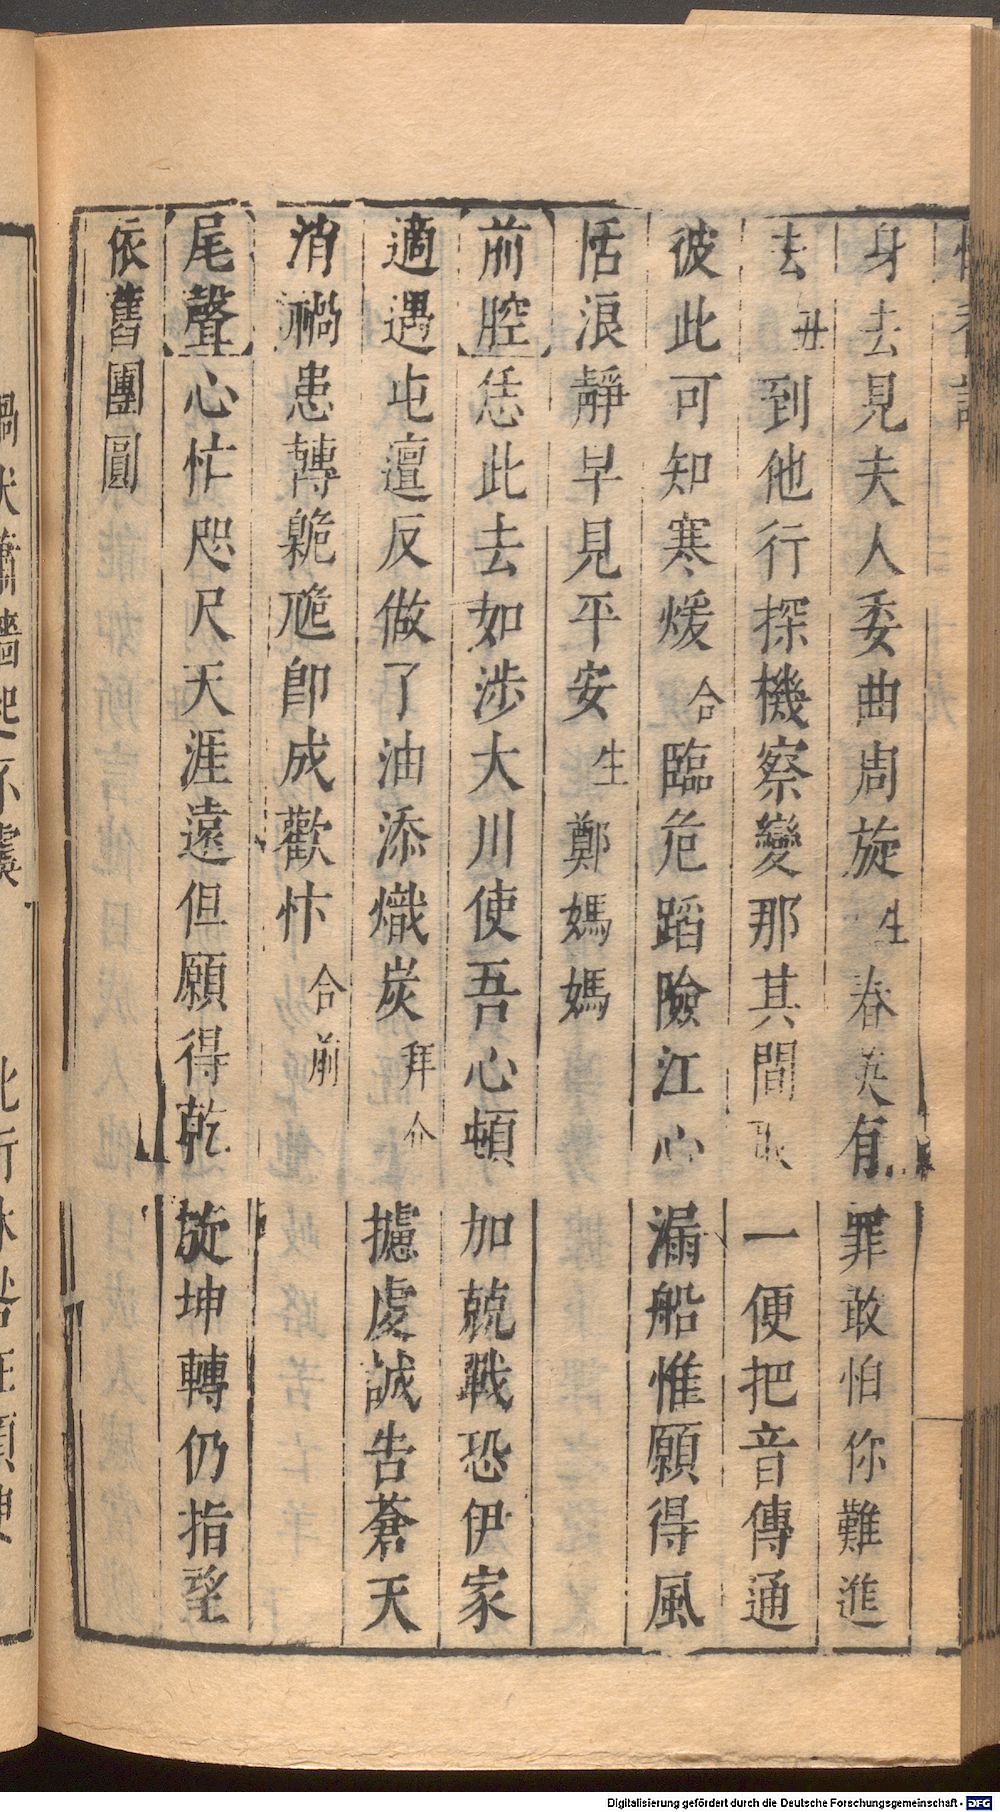 身去見夫人委曲周旋生春英有罪敢怕你難進
去丑到他行探機察變那其間取一便把音傳通
彼此可知寒煖合臨危蹈險江心漏船惟願得風
恬浪靜早見平安生鄭媽媽
前腔恁此去如涉大川使吾心頓加兢戰恐伊家
適遇屯邅反做了油添熾炭拜介攄虔誠告蒼天
消禍患轉臲卼卽成歡忭合前
尾聲心忙咫尺天涯遠但願得乾旋坤轉仍指望
依舊團圓
Digitalisierung gefördert durch die Deutsche Forschungsgemeinschaft - DFG